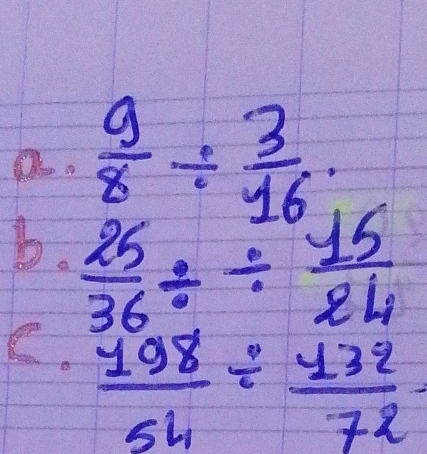 a. 9/8 ÷ 3/16.
b. 25/36 ÷ ÷ 15/24
c. 198/54 ÷ 132/72.